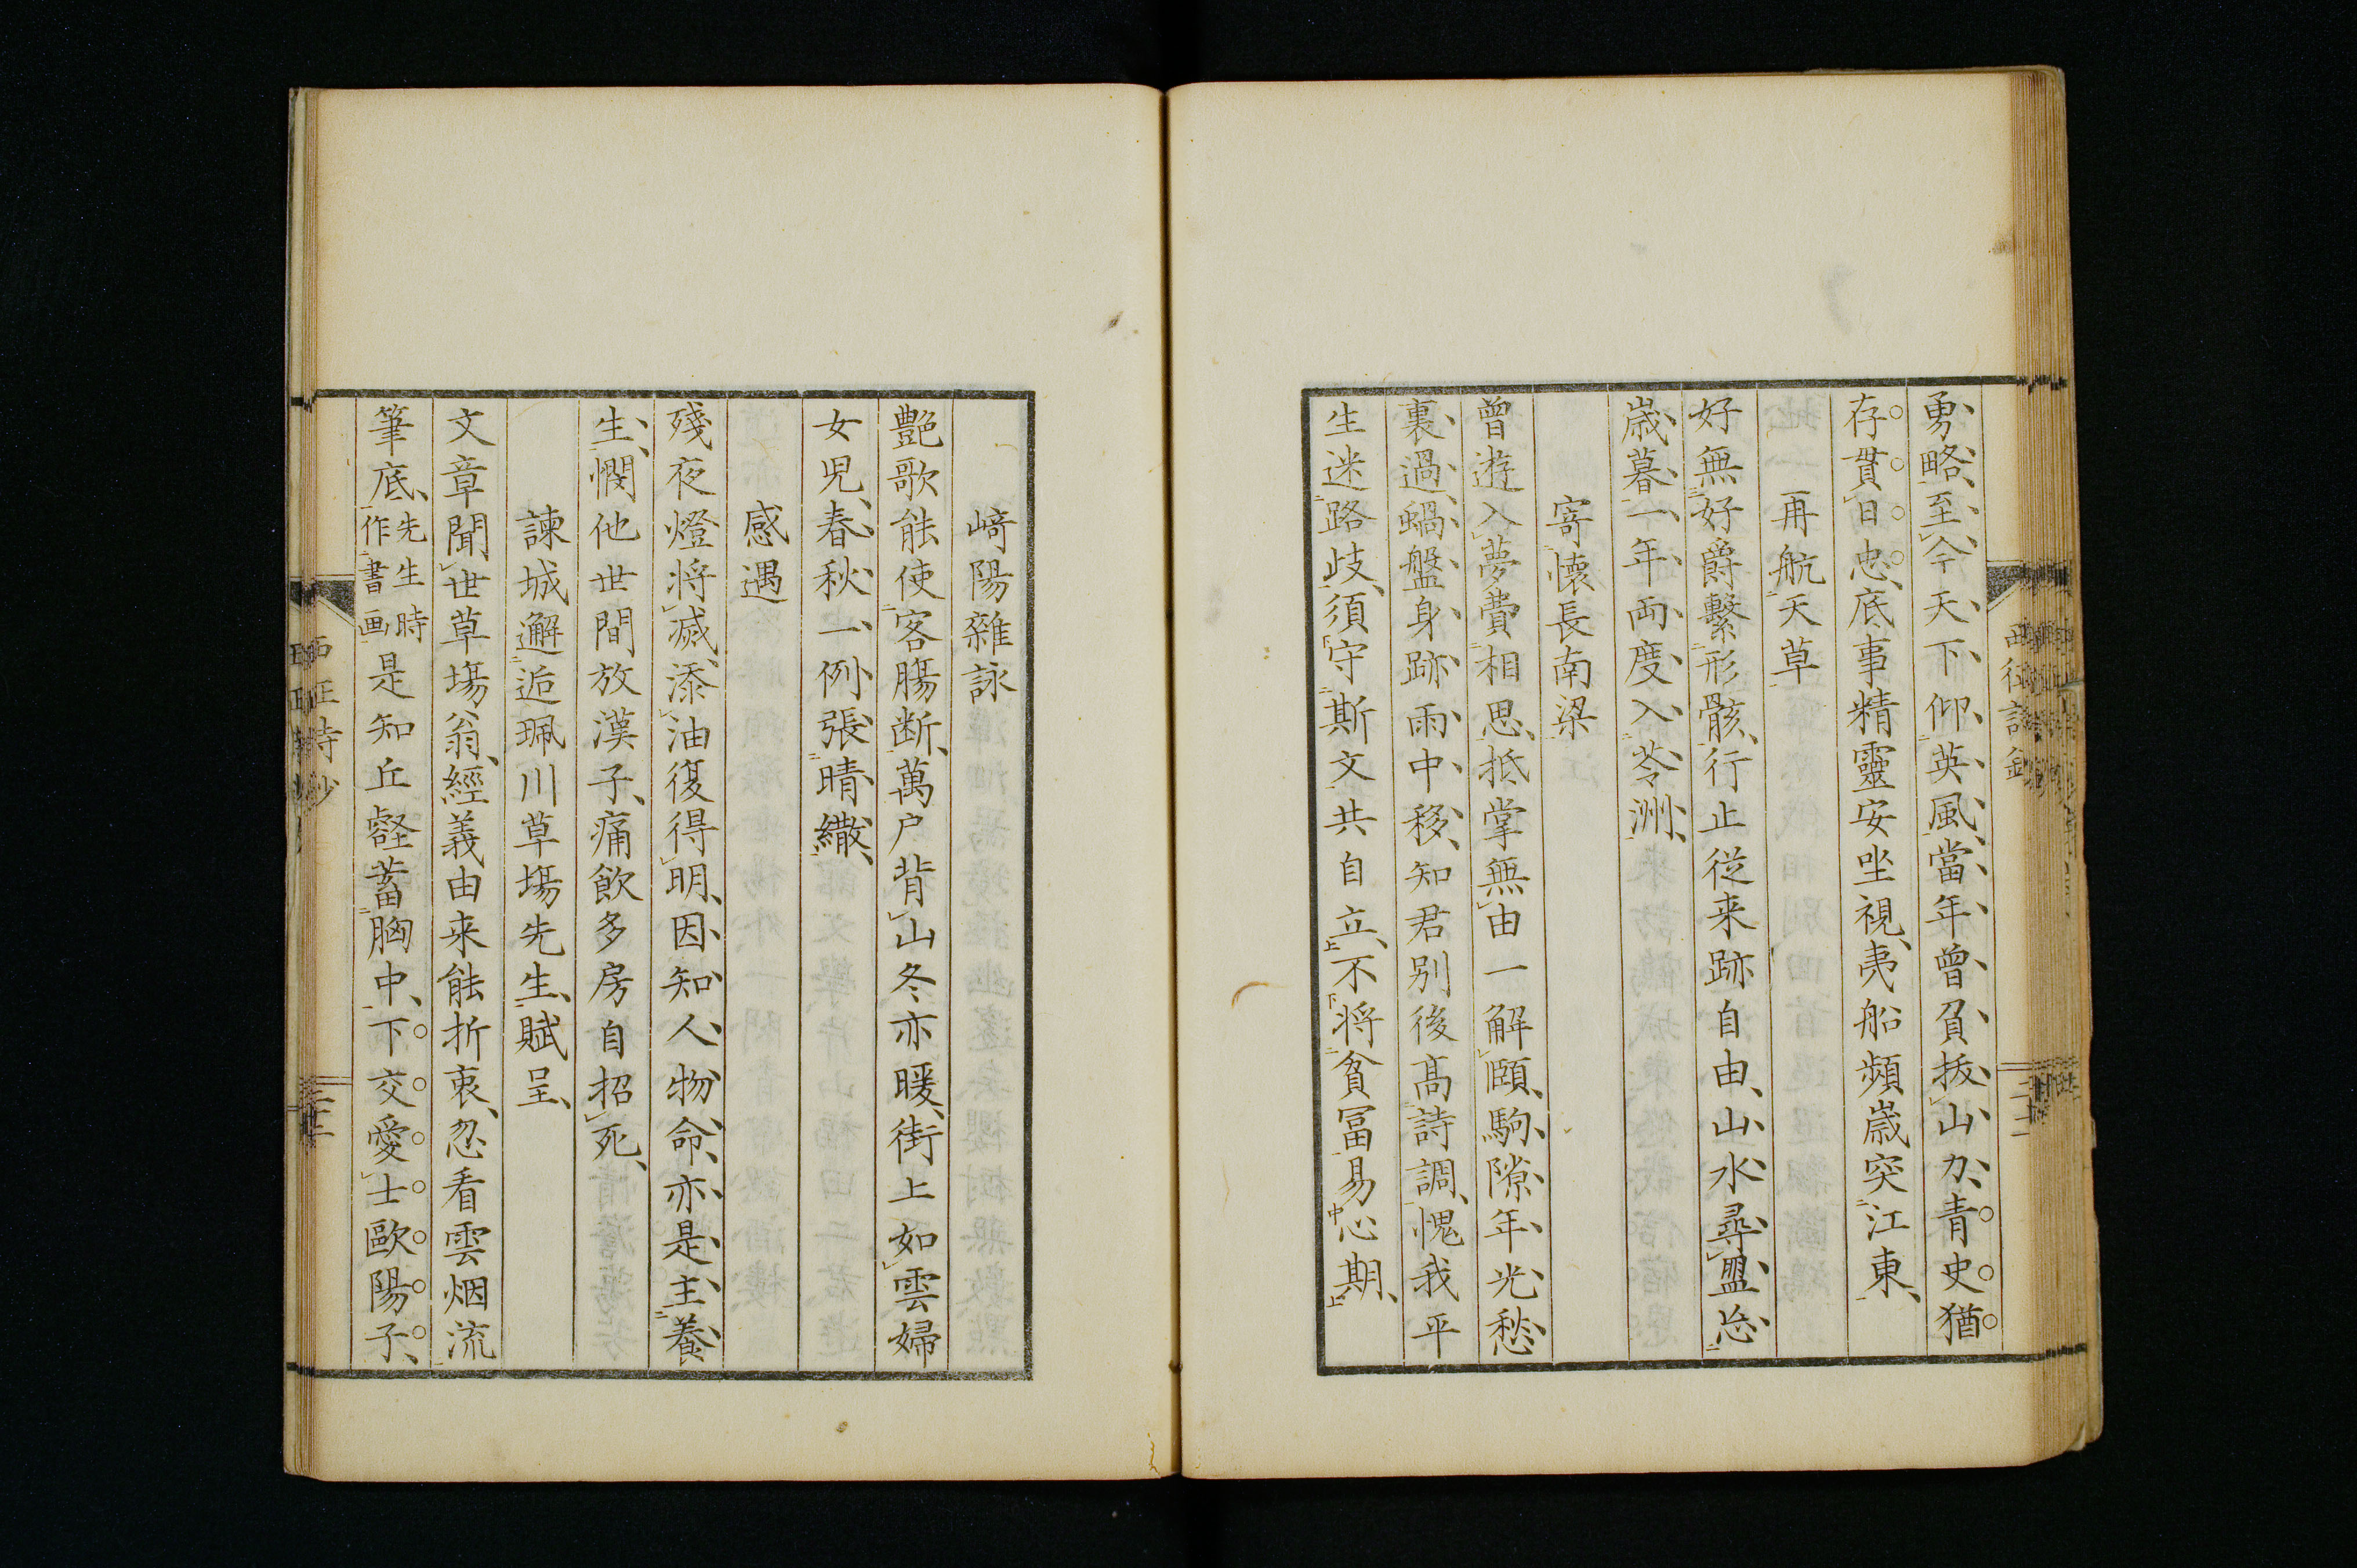 勇略至今天下仰英風當年曾負拔山力青史猶
存貫日忠底事精靈安坐視夷船頻歲突江東
再航天草
好無好爵繫形骸行止從来跡自由山水尋盟忩
歲暮一年両度入苓洲
寄懐長南梁
曾遊入夢費相思抵掌無由一解頤駒隙年光愁
裏過蝸盤身跡雨中移知君別後髙詩調愧我平
生迷路歧須守斯文共自立不将貧冨易心期
﨑陽雜詠
艷歌能使客膓断萬户背山冬亦暖街上如雲婦
女児春秋一例張晴繖
感遇
殘夜燈将滅添油復得明因知人物命亦是主養
生憫他世間放漢子痛飲多房自招死
諫城邂逅珮川草塲先生賦呈
文章聞世草塲翁經義由来能折衷忽看雲烟流
筆底先生時作書画是知丘壑蓄胸中下交愛士歐陽子
西征詩鈔